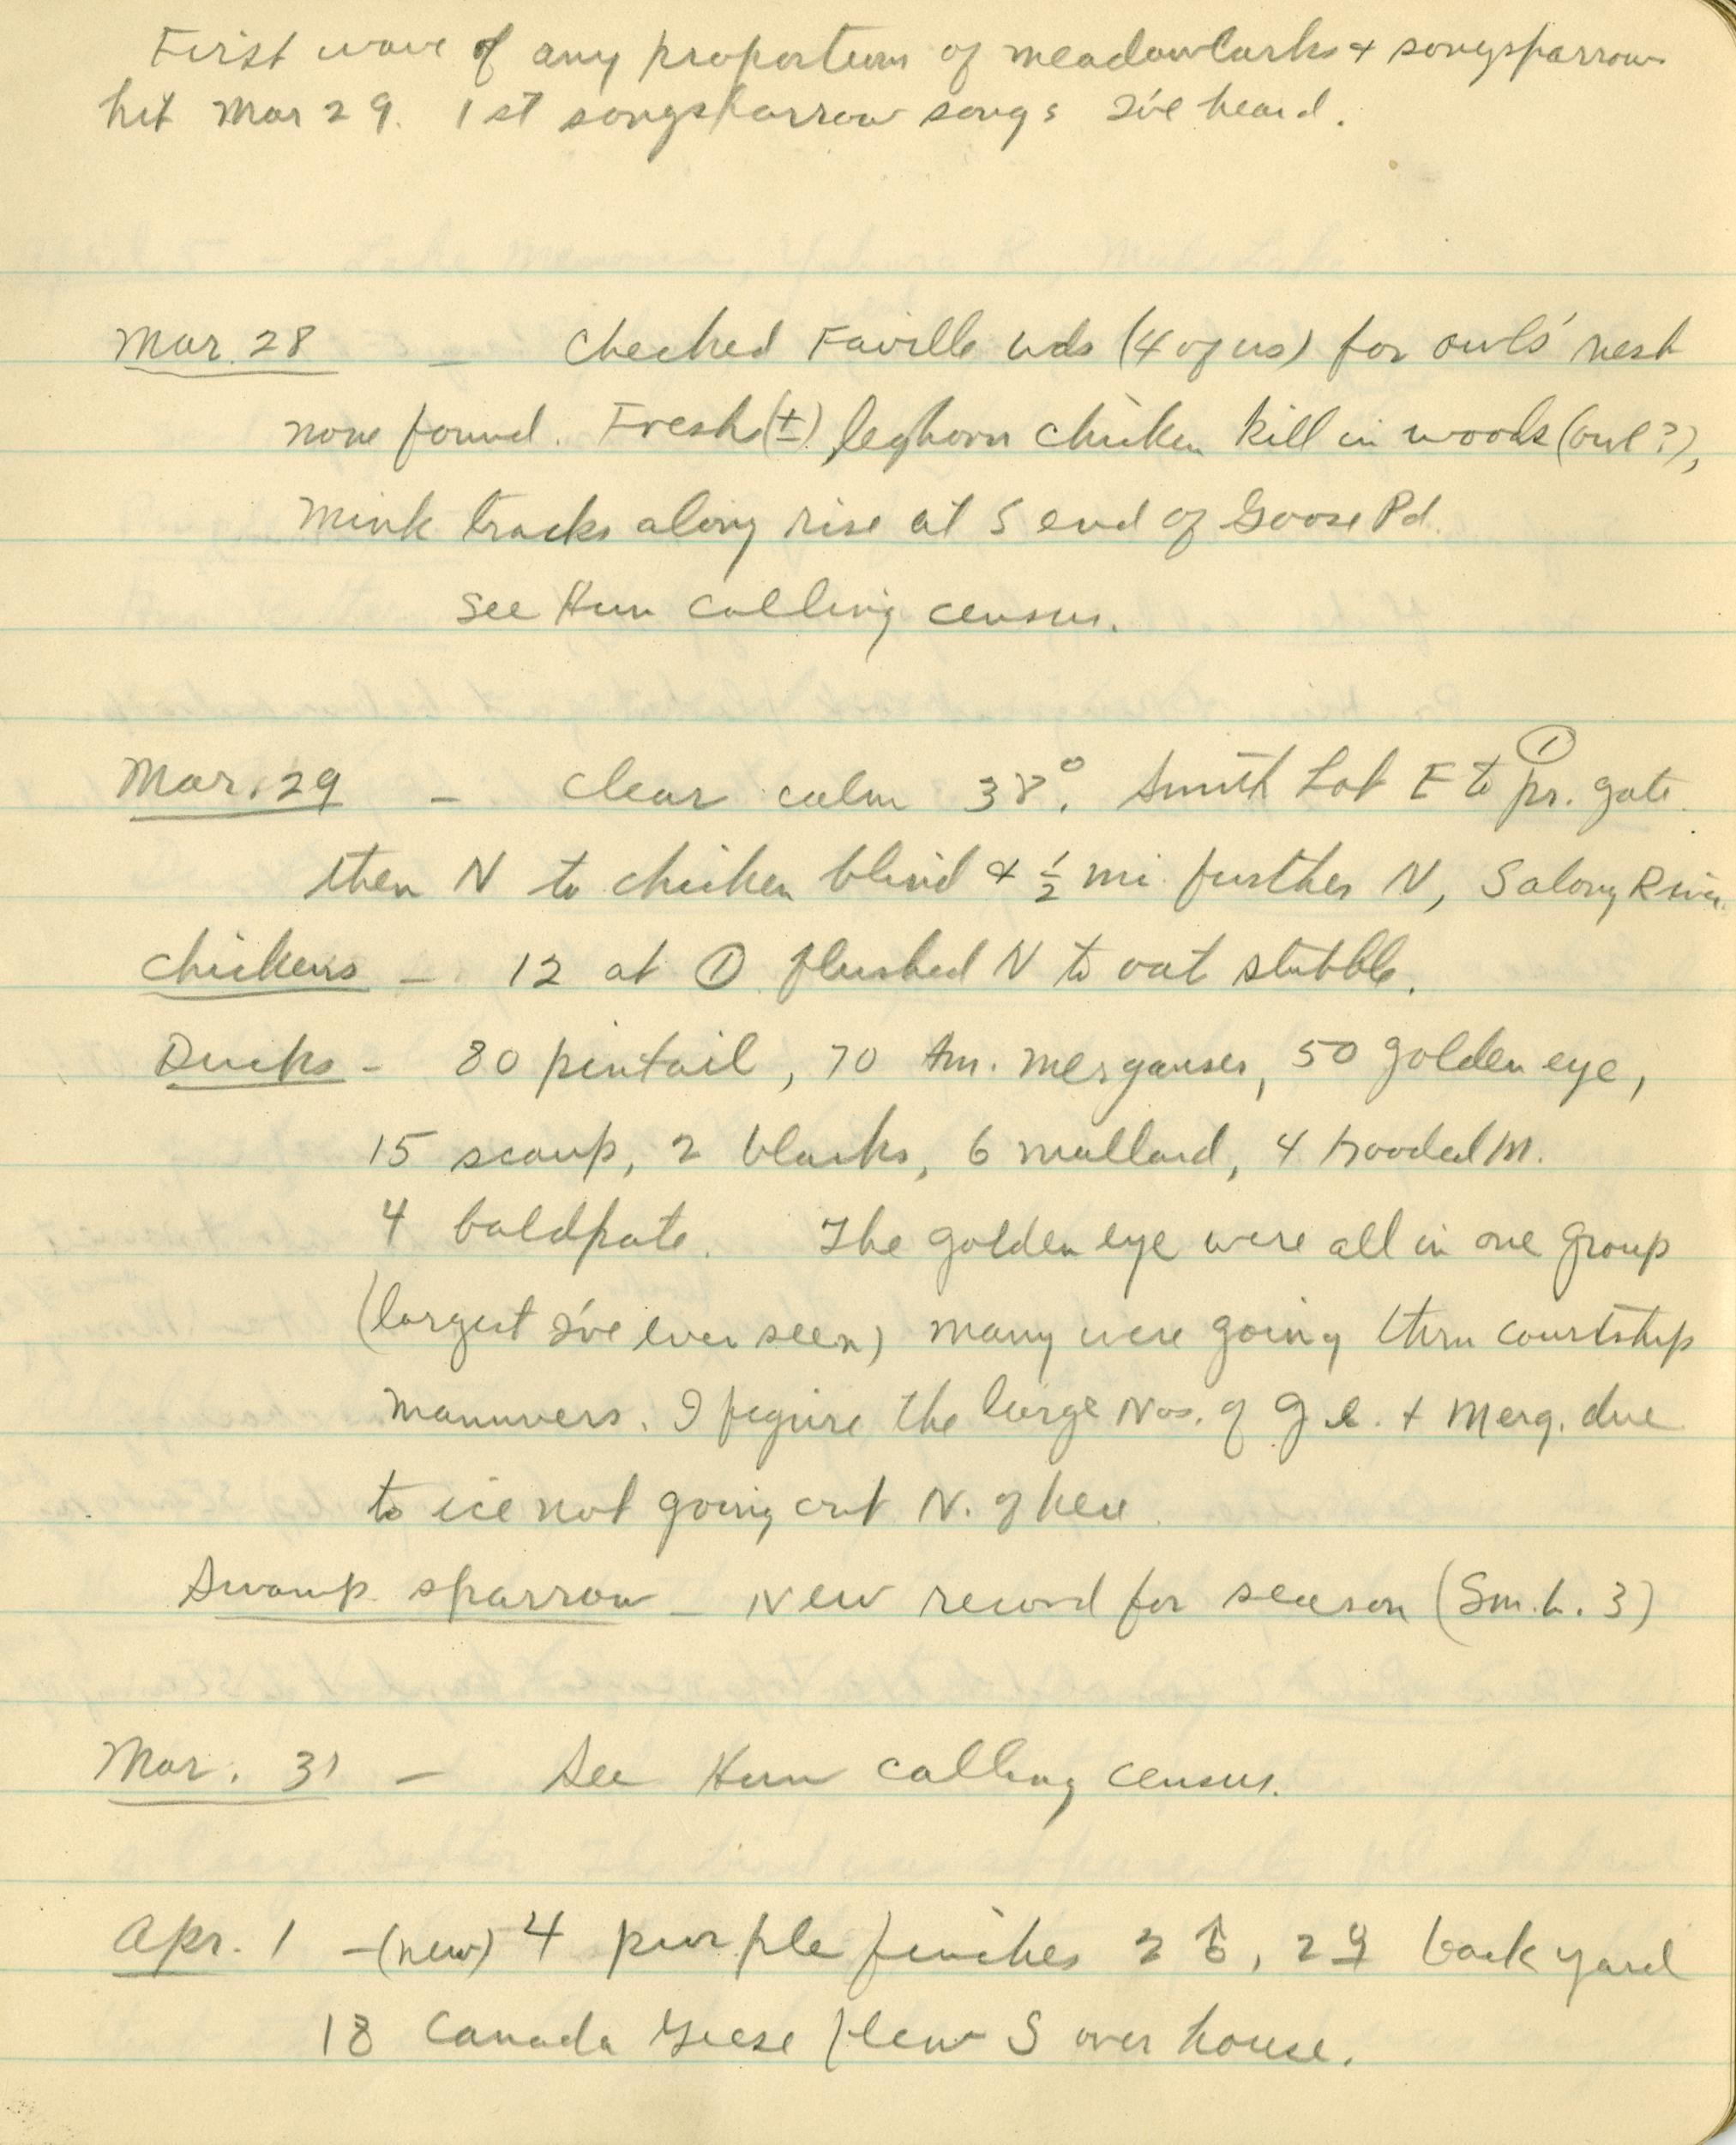 First wave of any proportion of meadowlarks & songsparrows
hit Mar 29. 1st songsparrow songs I've heard.
Mar. 28 - Checked Faville wds (4 of us) for owls' nest
none found. Fresh (±) leghorn chicken kill in woods (owl?),
Mink tracks along rise at S end of Goose Pd.
See Hun calling census.
①
Mar. 29 - Clear calm 38°. Smith Lot E to pr. gate.
then N to chicken blind & ½ mi further N, S along River.
Chickens - 12 at ① flushed N to oat stubble.
Ducks - 80 pintail, 70 Am. merganser, 50 golden eye,
15 scaup, 2 blacks, 6 mallard, 4 hooded M.
4 baldpate. The golden eye were all in one group
(largest I've ever seen) many were going thru courtship
manuvers. I figure the large Nos. of g.e. + Merg. due
to ice not going out N. of here.
Swamp sparrow - New record for season (Sm. L. 3)
Mar. 31 - See Hun calling census.
Apr. 1 - (new) 4 purple finches 2 ♂, 2 ♀ back yard
18 Canada Geese flew S over house.